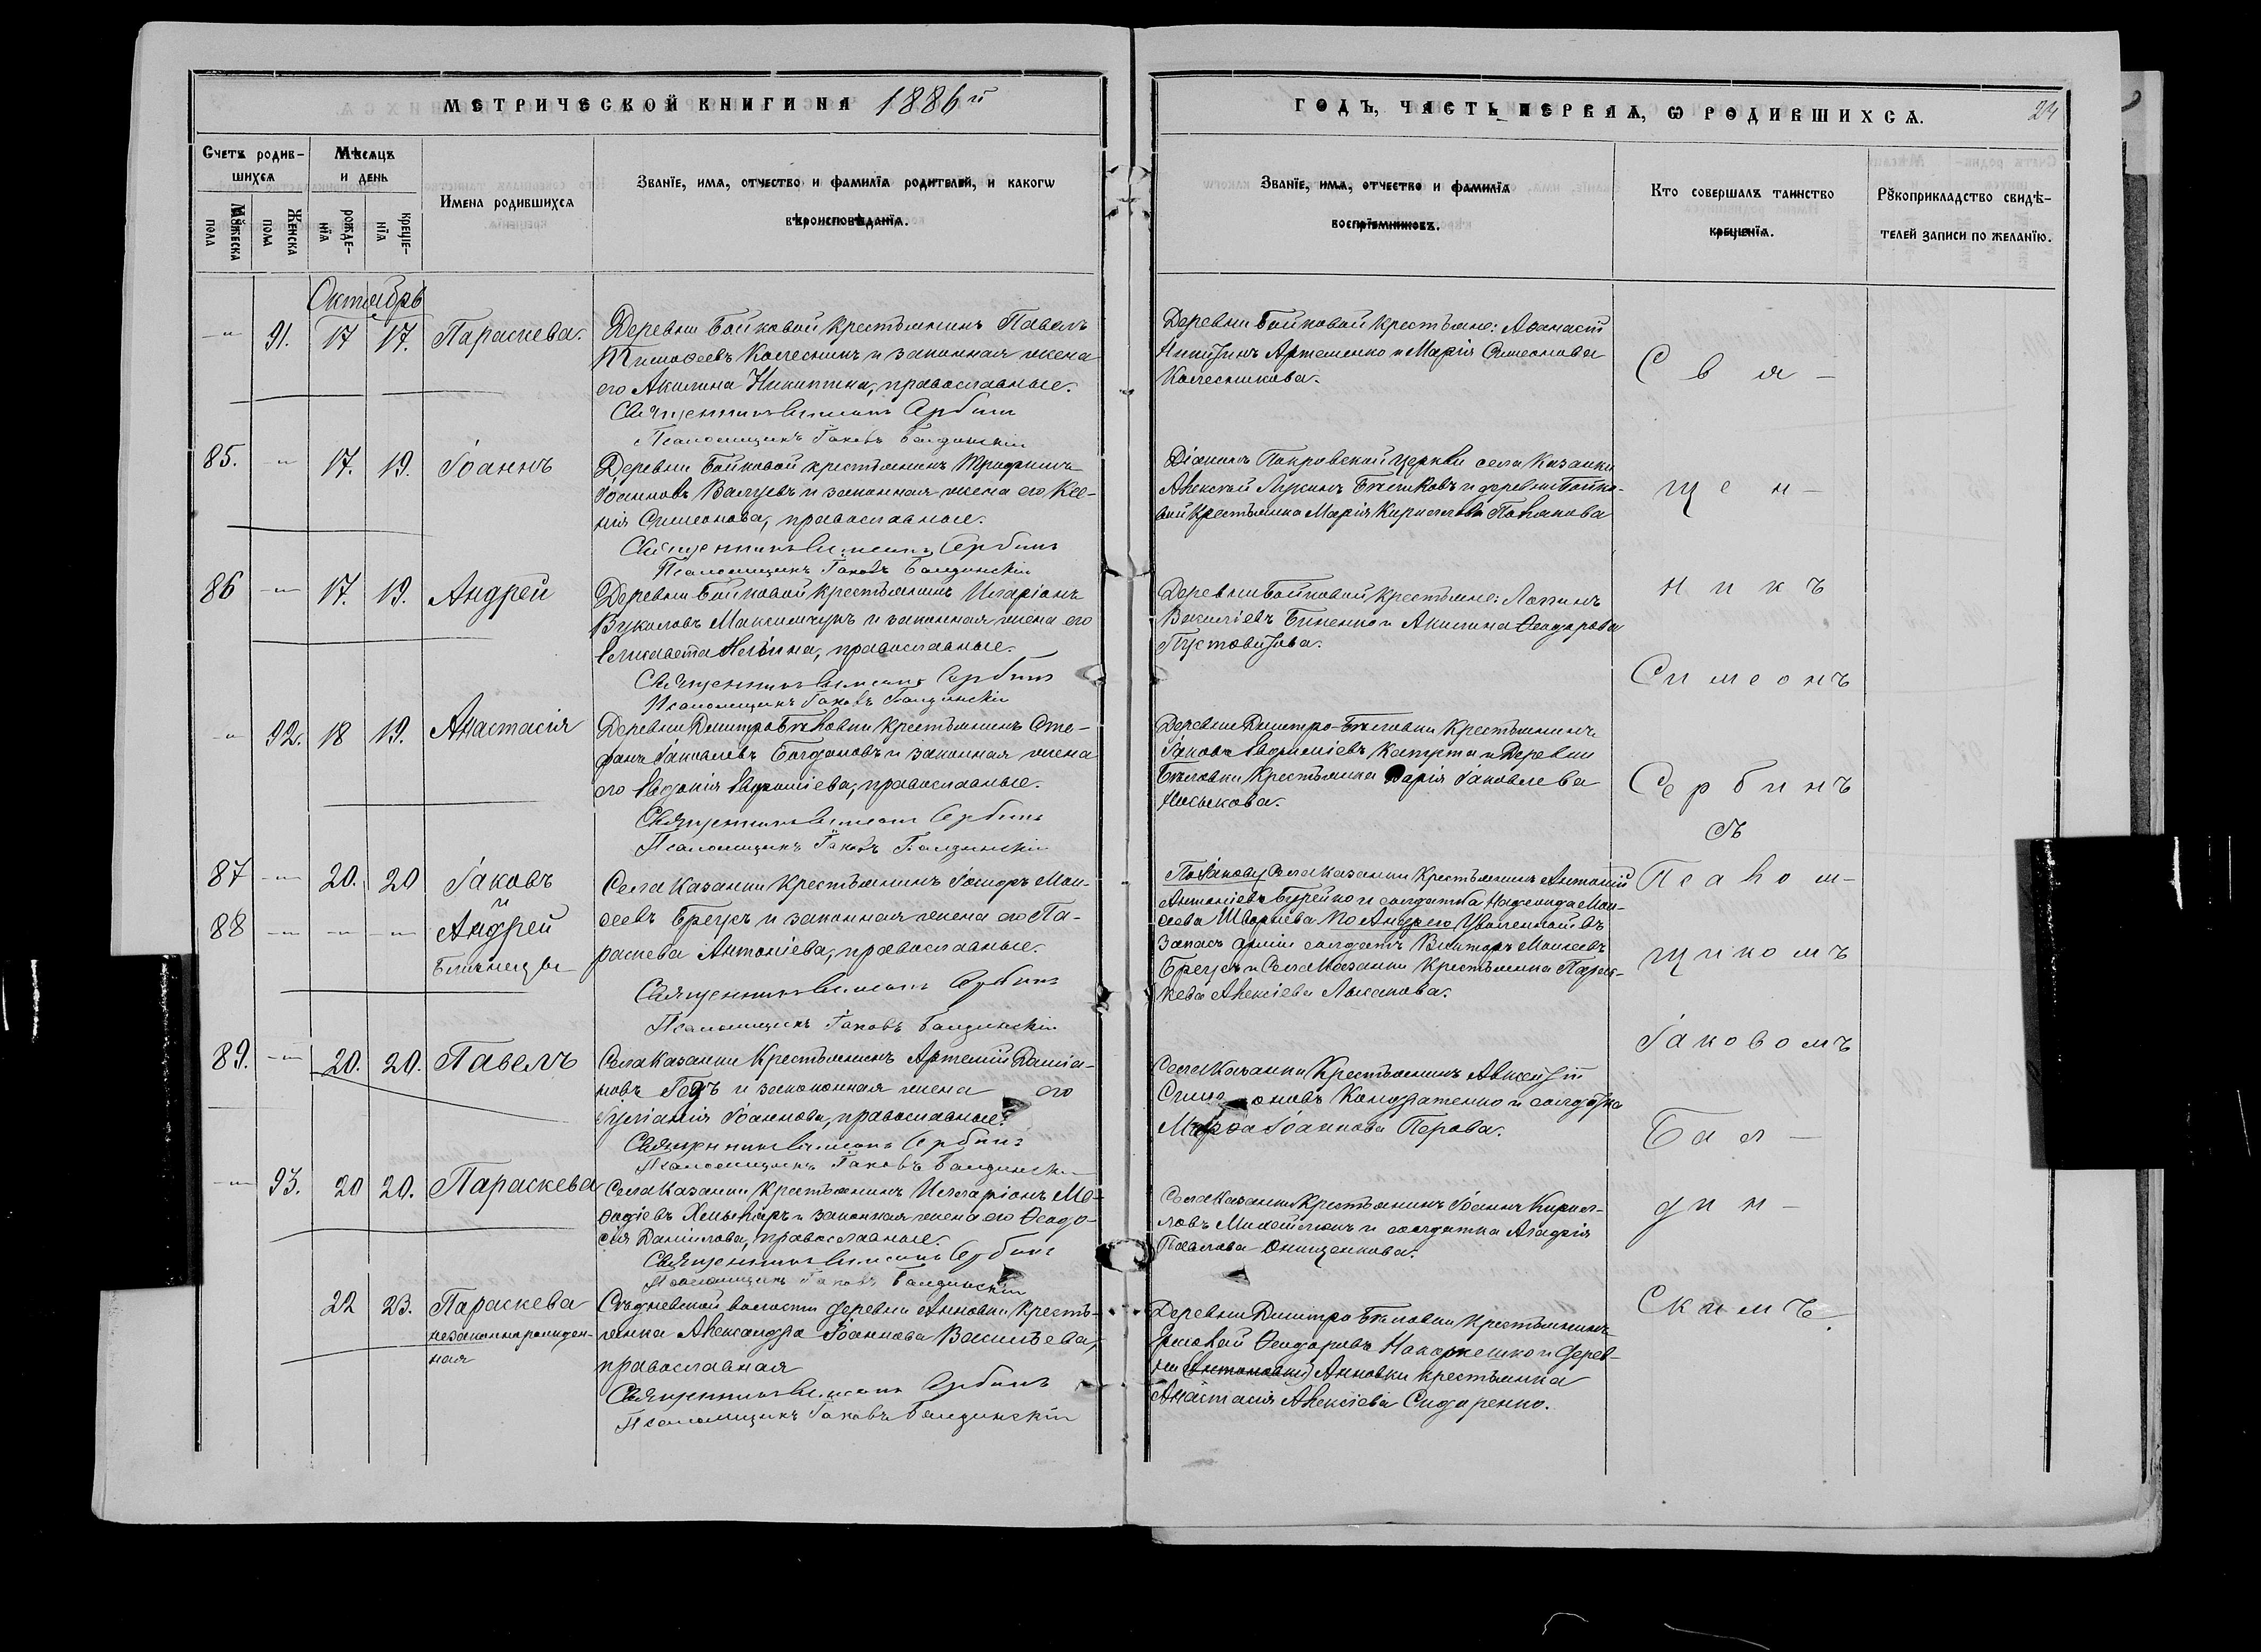 МЕТРИЧЕСКОЙ КНИГИ НА 1886й
ГОДЪ, ЧАСТЬ ПЕРВАЯ, Ѡ РОДИВШИХСЯ.
24
Счетъ родив-
шихся
Мѣсяцъ
и день
Мꙋжеска
пола
Женска
пола
рожде-
нїя
креще-
нїя
Имена родившихся
Званїе, имя, отчество и фамилїя родителей, и какогѡ
вѣроисповѣданїя.
Званїе, имя, отчество и фамилїя
воспрїемниковъ.
Кто совершалъ таинство
крещенїя.
Рꙋкоприкладство свидѣ-
телей записи по желанїю.
Октябрь
91. 17 17. Параскева.
Деревни Бойковой крестьянинъ Павелъ
Тимофеевъ Колесникъ и законная жена
его Акилина Никитина, православные.
Священникъ Симеонъ Сербинъ
Псаломщикъ Іаковъ Балдинскій
Деревни Бойковой крестьяне: Аѳанасій
Никитинъ Артеменко и Марія Симеонова
Колесникова.
85. 17. 19. Іоаннъ
Деревни Бойковой крестьянинъ
Іоанновъ и законная жена его Ксе-
нія Симеонова, православные.
Священникъ Симеонъ Сербинъ
Псаломщикъ Іаковъ Балдинскій
Діаконъ Покровской церкви села Казанки
Алексѣй Лукинъ и деревни Бойко-
вой крестьянка Марія Кириллова
86 17. 19. Андрей
Деревни Бойковой крестьянинъ Иларіонъ
Вуколовъ Максимчукъ и законная жена его
Елисавета Ильина, православные.
Священникъ Симеонъ Сербинъ
Псаломщикъ Іаковъ Балдинскій
Деревни Бойковой крестьяне: Логинъ
и Акилина Ѳеодорова
Пустовитова.
92. 18 19. Анастасія
Деревни Димитро-Бѣловки крестьянинъ Сте-
фанъ Іаковлевъ Богдановъ и законная жена
его Евдокія Евфиміева, православные.
Священникъ Симеонъ Сербинъ
Псаломщикъ Іаковъ Балдинскій
Деревни Димитро-Бѣловки крестьянинъ
Іаковъ Евфиміевъ и Деревни
Бѣловки крестьянка Дарія Іаковлева
87 20. 20 Іаковъ
и
88 Андрей
Близнецы
Села Казанки крестьянинъ Іосифъ Мои-
сеевъ Брецъ и законная жена его Па-
раскева Антоніева, православные.
Священникъ Симеонъ Сербинъ
Псаломщикъ Іаковъ Балдинскій
По Іакову Села Казанки крестьянинъ Антоній
Антоніевъ и солдатка Надежда Мои-
сеева По Андрею, Уволенный въ
запасъ арміи солдатъ Викторъ Моисеевъ
Брецъ и Села Казанки крестьянка Парас-
кева Алексіева
89. 20. 20. Павелъ
Села Казанки крестьянинъ Артемій Даміа-
новъ и законная жена его
Іуліанія Іоаннова, православные.
Священникъ Симеонъ Сербинъ
Псаломщикъ Іаковъ Балдинскій
Села Казанки крестьянинъ Авксентій
Симеоновъ Кондратенко и солдатка
Марѳа Іоаннова Перова.
93. 20 20. Параскева
Села Казанки крестьянинъ Илларіонъ Ме-
ѳодіевъ и законная жена его Ѳеодо-
сія Даніилова, православные.
Священникъ Симеонъ Сербинъ
Псаломщикъ Іаковъ Балдинскій
Села Казанки крестьянинъ Іоаннъ Кирил-
ловъ и солдатка Агафія
Павлова Онищенкова.
22 23. Параскева
незаконнорожден-
ная
волости деревни Анновки кресть-
янка Александра Іоаннова Васильева,
православная
Священникъ Симеонъ Сербинъ
Псаломщикъ Іаковъ Балдинскій
Деревни Димитро Бѣловки крестьянинъ
Ѳеодоровъ и дерев-
ни Анновки крестьянка
Анастасія Алексіева Сидоренко.
Свя-
щен-
никъ
Симеонъ
Сербинъ
съ
Псалом-
щикомъ
Іаковомъ
Бал-
дин-
скимъ.